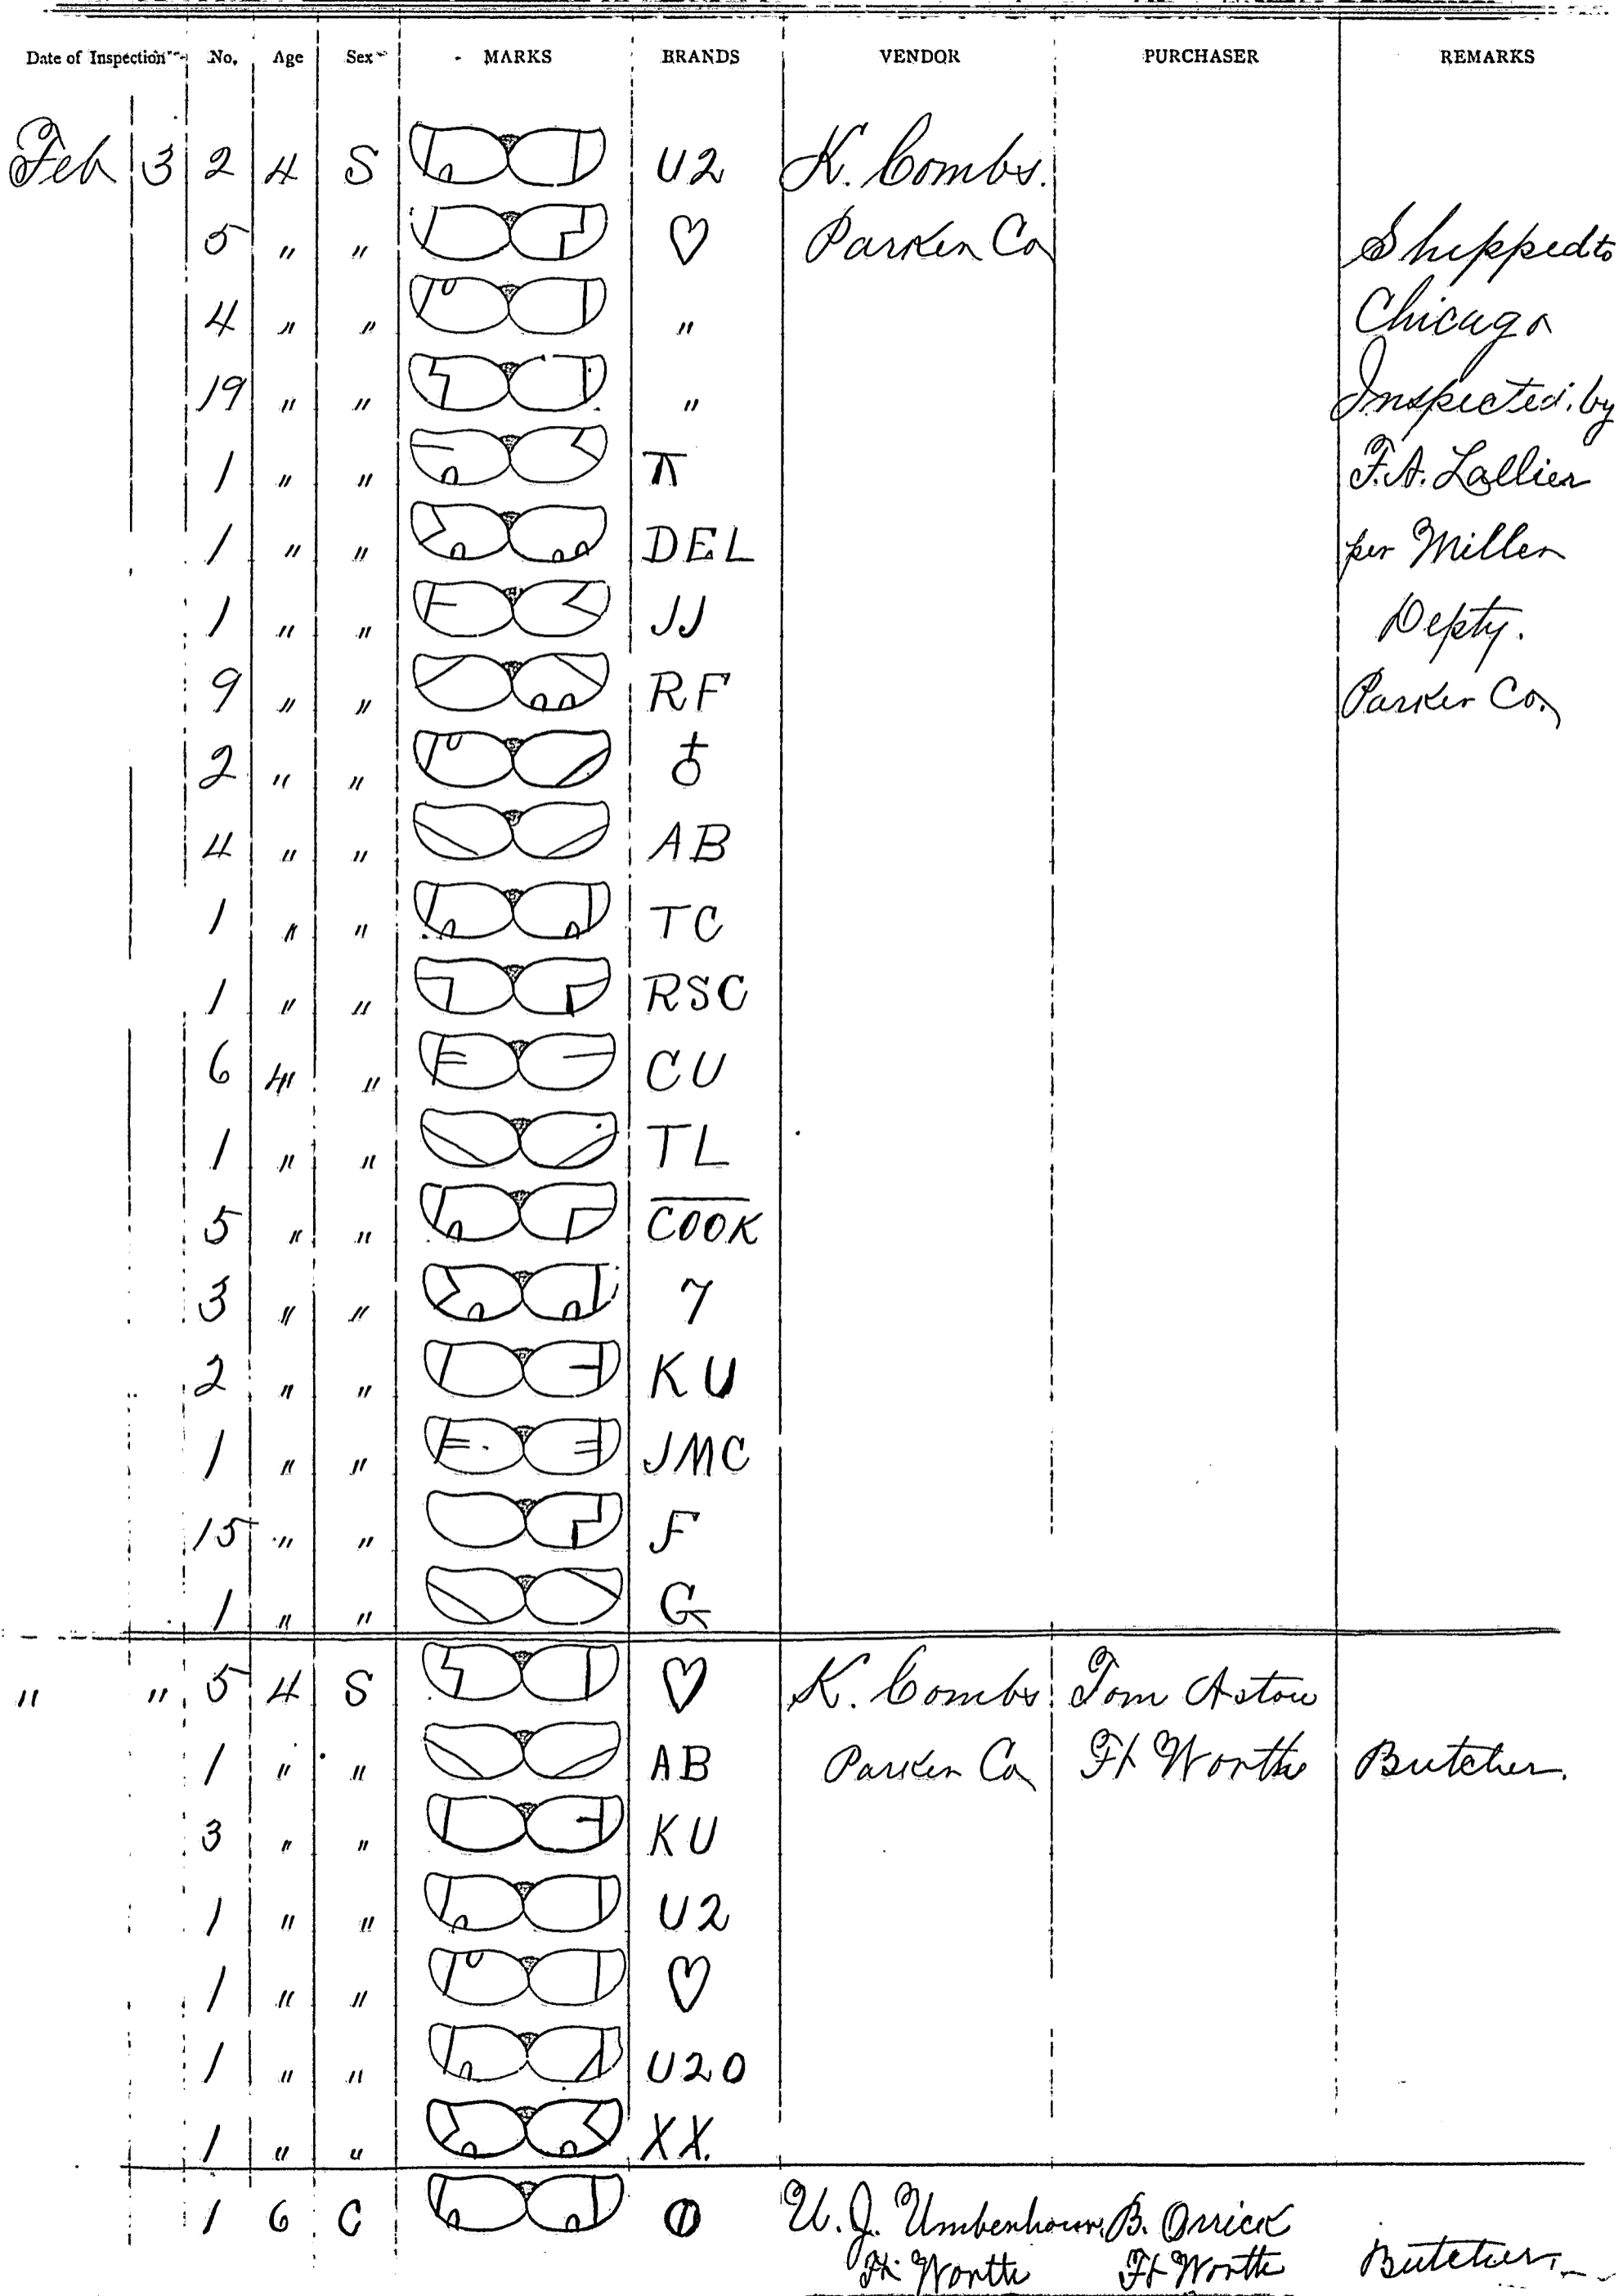 Date of Inspection No. Age Sex MARKS BRANDS VENDOR PURCHASER REMARKS
Feb 3 2 4 S U2 K. Combs.
5 " " ♡ Parker Co Shipped to
4 " " " Chicago
19 " " " Inspected by
1 " " F.A. Lallier
1 " " DEL per Miller
1 " " JJ Depty.
9 " " RF Parker Co.
2 " " ♁
4 " " AB
1 " " TC
1 " " RSC
6 4 " CU
1 " " TL
5 " " COOK
3 " " 7
2 " " KU
1 " " JMC
15 " " F
1 " " G
" " 5 4 S ♡ K. Combs Tom Aston
1 " " AB Parker Co Ft Worth Butcher.
3 " " KU
1 " " U2
1 " " ♡
1 " " U20
1 " " XX.
1 6 C B. Orrick
Ft. Worth Ft Worth Butcher.